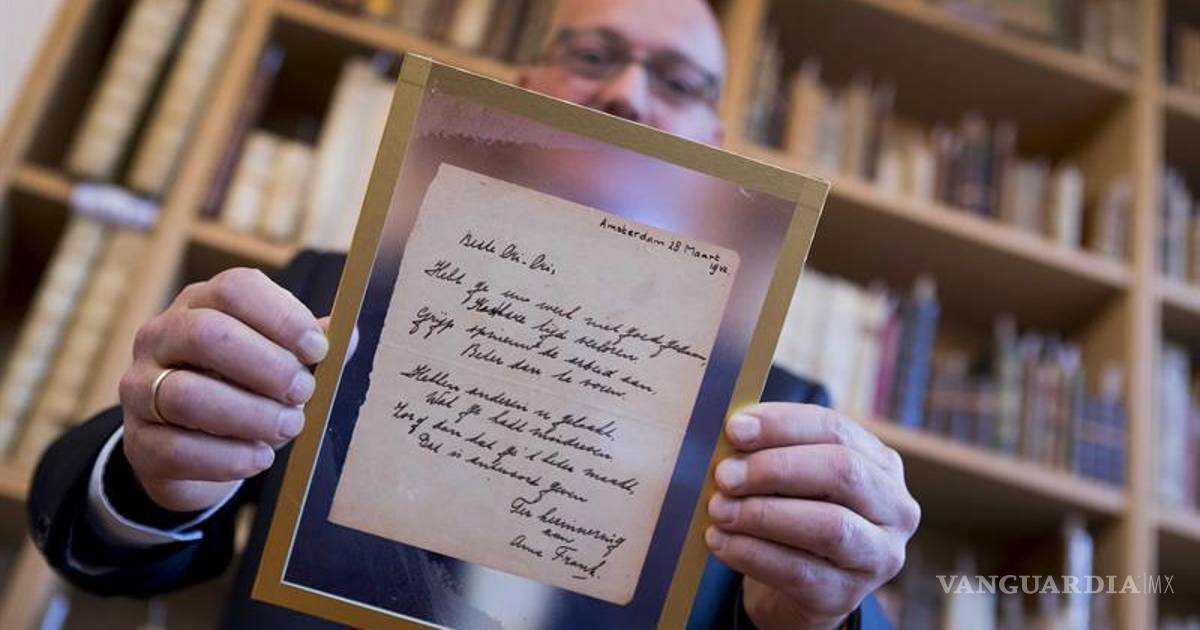 Amsterdam 28 Maart
1942.
Beste Cri-Cri,
Hebt ge uw werk niet goed gedaan,
Kostb're tijd verloren
Grijp opnieuw de arbeid aan.
Beter dan te voren.
Hebben anderen u gelaakt,
Wat ge hebt misdreven
Zorg dan dat ge 't beter maakt,
Dat is antwoord geven
Ter herinnering
aan
Anne Frank.
VANGUARDIA|MX